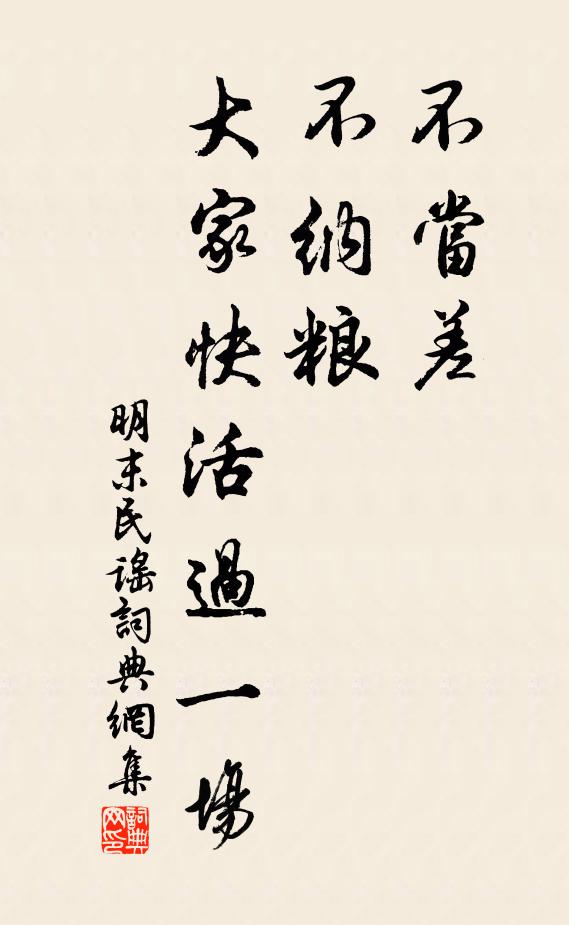 不當差
不納粮
大家快活過一場
明末民謠詞典網集
詞典
网印